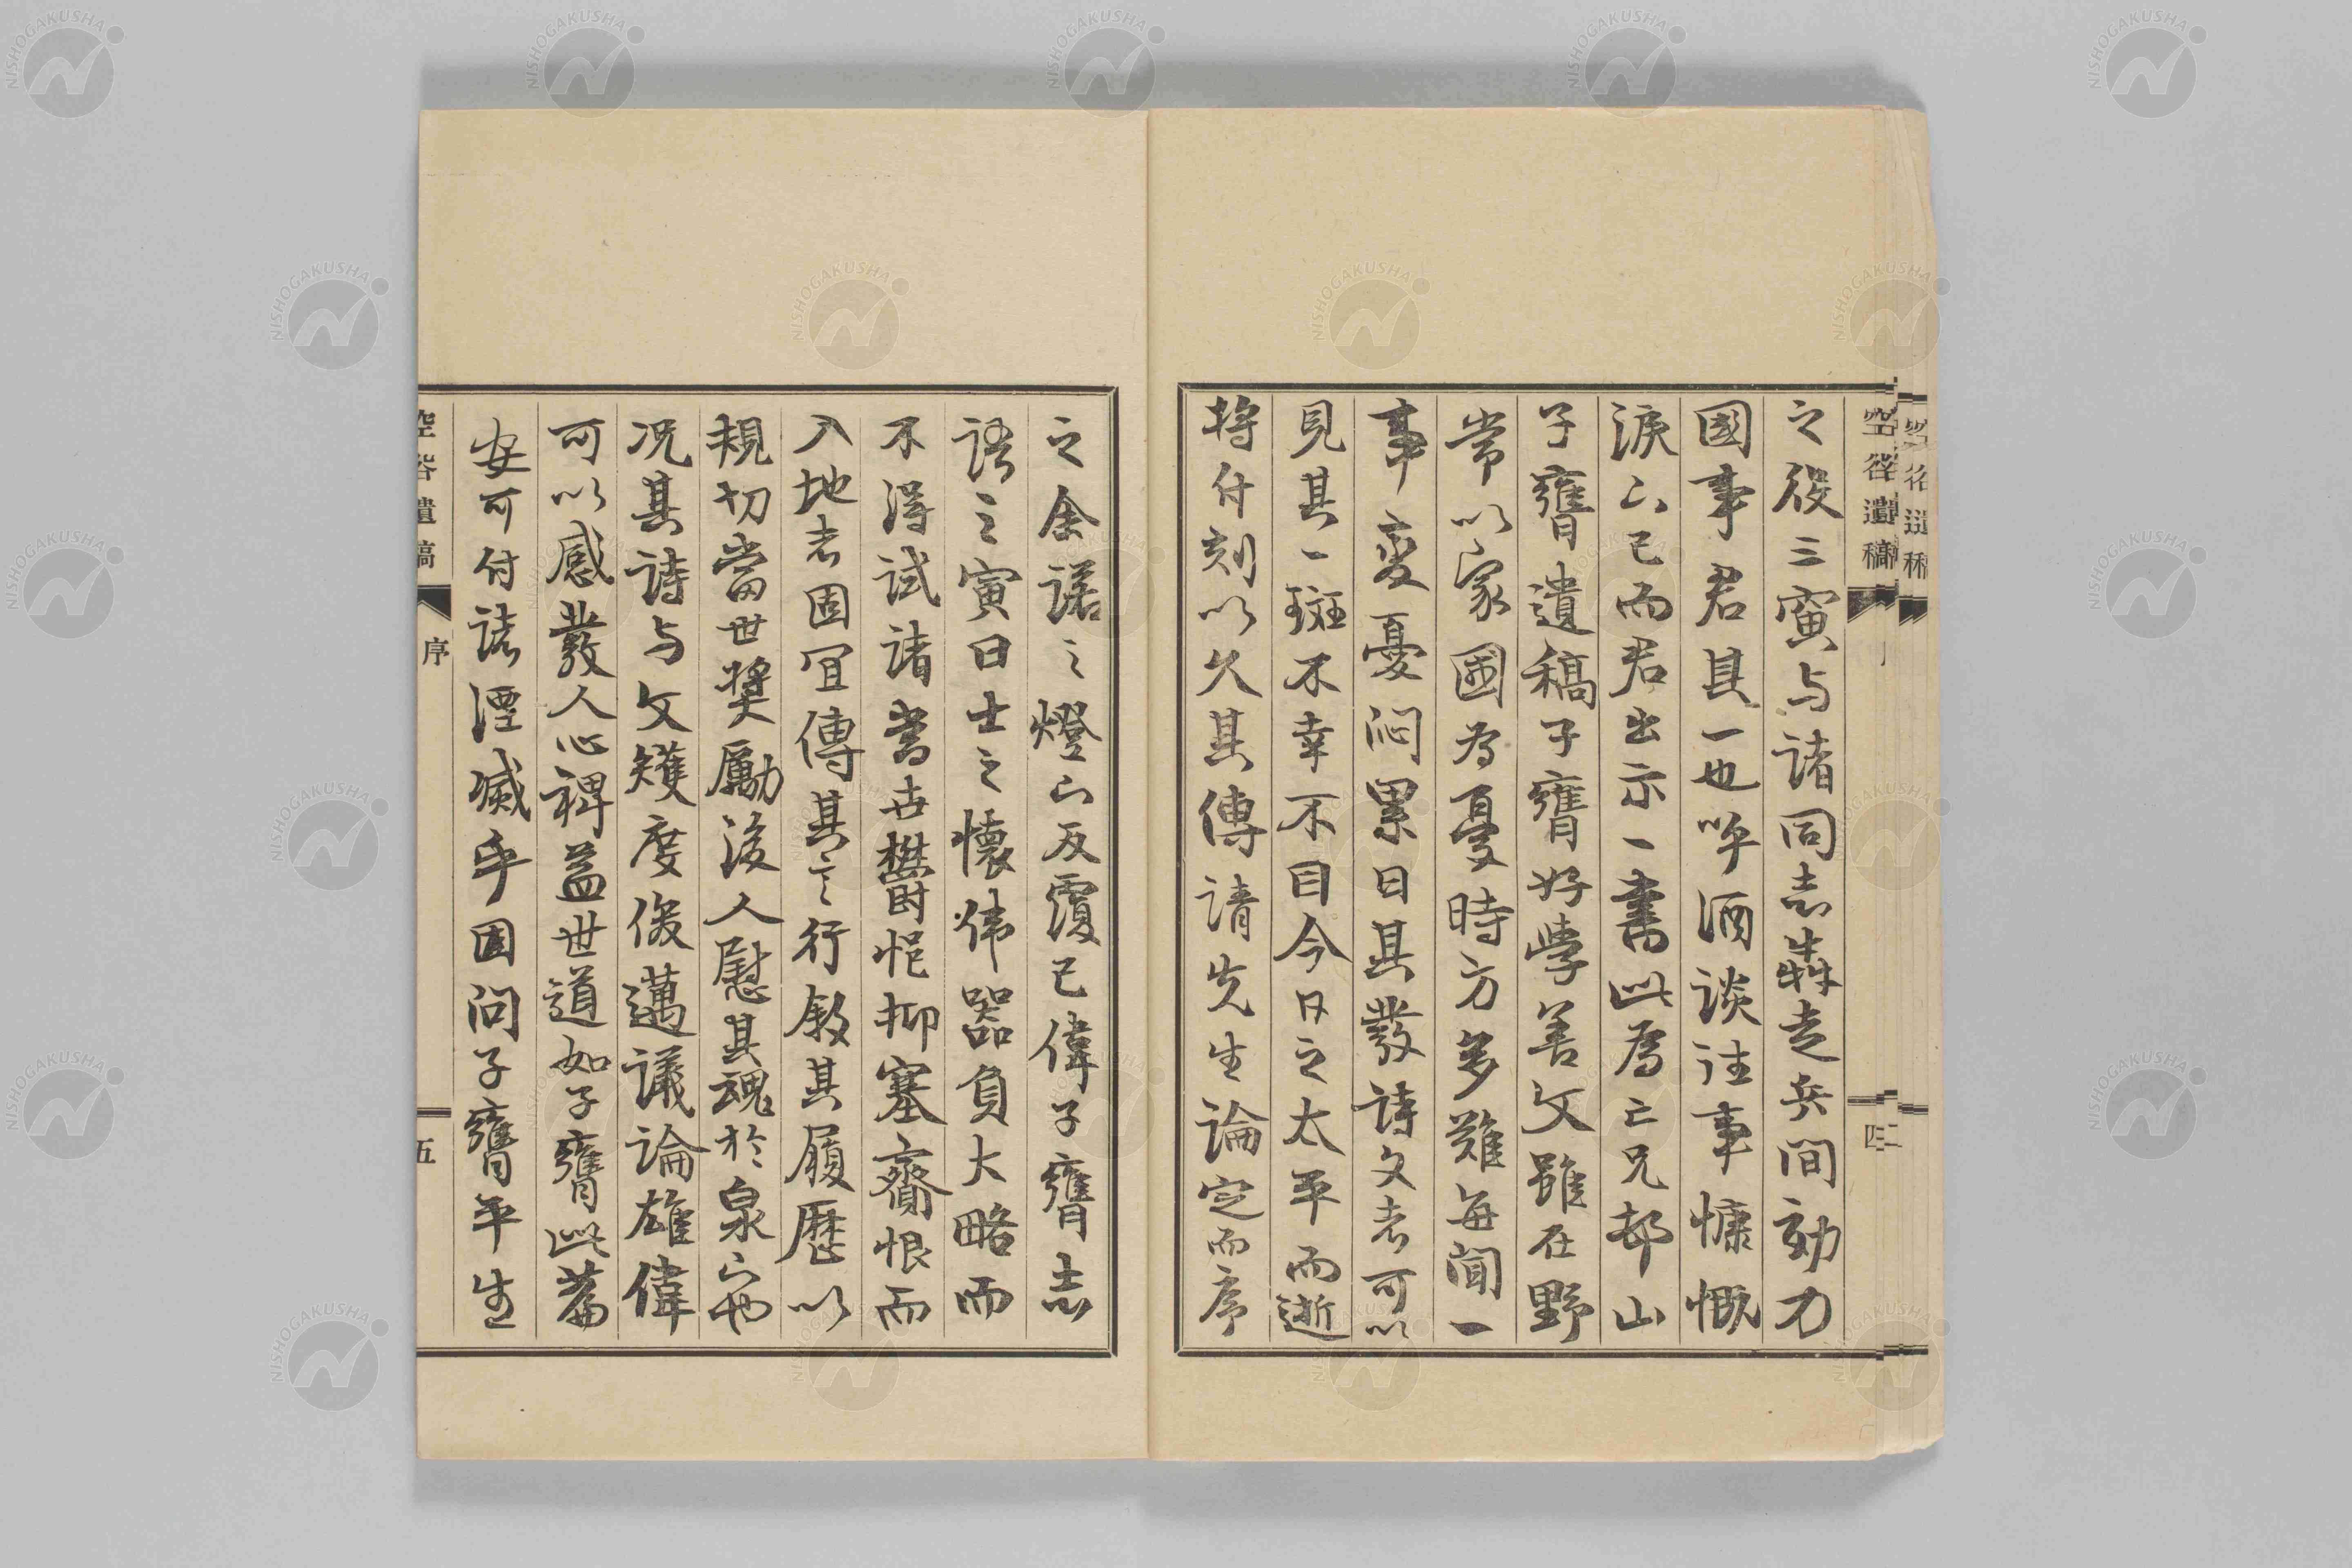 之役三寅与諸同志犇走兵間効力
國事君其一也呼酒談往事慷慨
淚下已而君出示一書此為亡兄邨山
子甕遺稿子甕好學善文雖在野
常以家國為憂時方多難每聞一
事變憂悶累日其發詩文者可以
見其一斑不幸不目今日之太平而逝
將付刻以久其傳請先生論定而序
之余諾之燈下反覆已偉子甕志
語三寅曰士之懷偉器負大略而
不得試諸當世鬱悒抑塞齎恨而
入地者固宜傳其言行敘其履歷以
規切當世奬勵後人慰其魂於泉下也
況其詩与文矱度俊邁議論雄偉
可以感發人心裨益世道如子甕此藁
安可付諸湮滅乎因問子甕平生
空谷遺稿
序
五
四
NISHOGAKUSHA